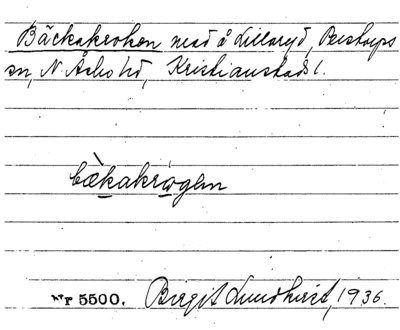 Bäckakroken mad å Lillaryd, Perstorps
sn, N. Åsbo hd, Kristianstads l.
bæ̀kakrogen
Nr 5500. Birgit Lundkvist, 1936.